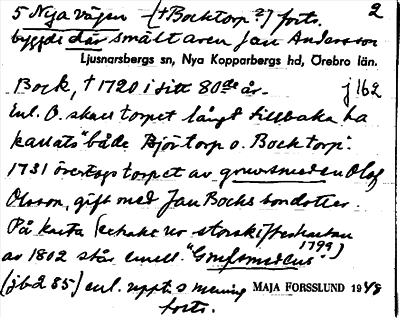 5 Nya vägen (+Bocktorp?) forts. 2
byggde där smältaren Jan Andersson
Ljusnarsbergs sn, Nya Kopparbergs hd, Örebro län.
Bock, † 1720 i sitt 80de år. j 162
Enl. O. skall torpet långt tillbaka ha
kallats "både Björtorp o. Bocktorp."
1731 övertogs torpet av gruvsmeden Olof
Olsson, gift med Jan Bocks sondotter.
På karta (echake ur storskifteskartan
1799)
av 1802 står emell. "Grufsmedens".
(jb2 85) enl. uppt. s mening MAJA FORSSLUND 1948
forts.